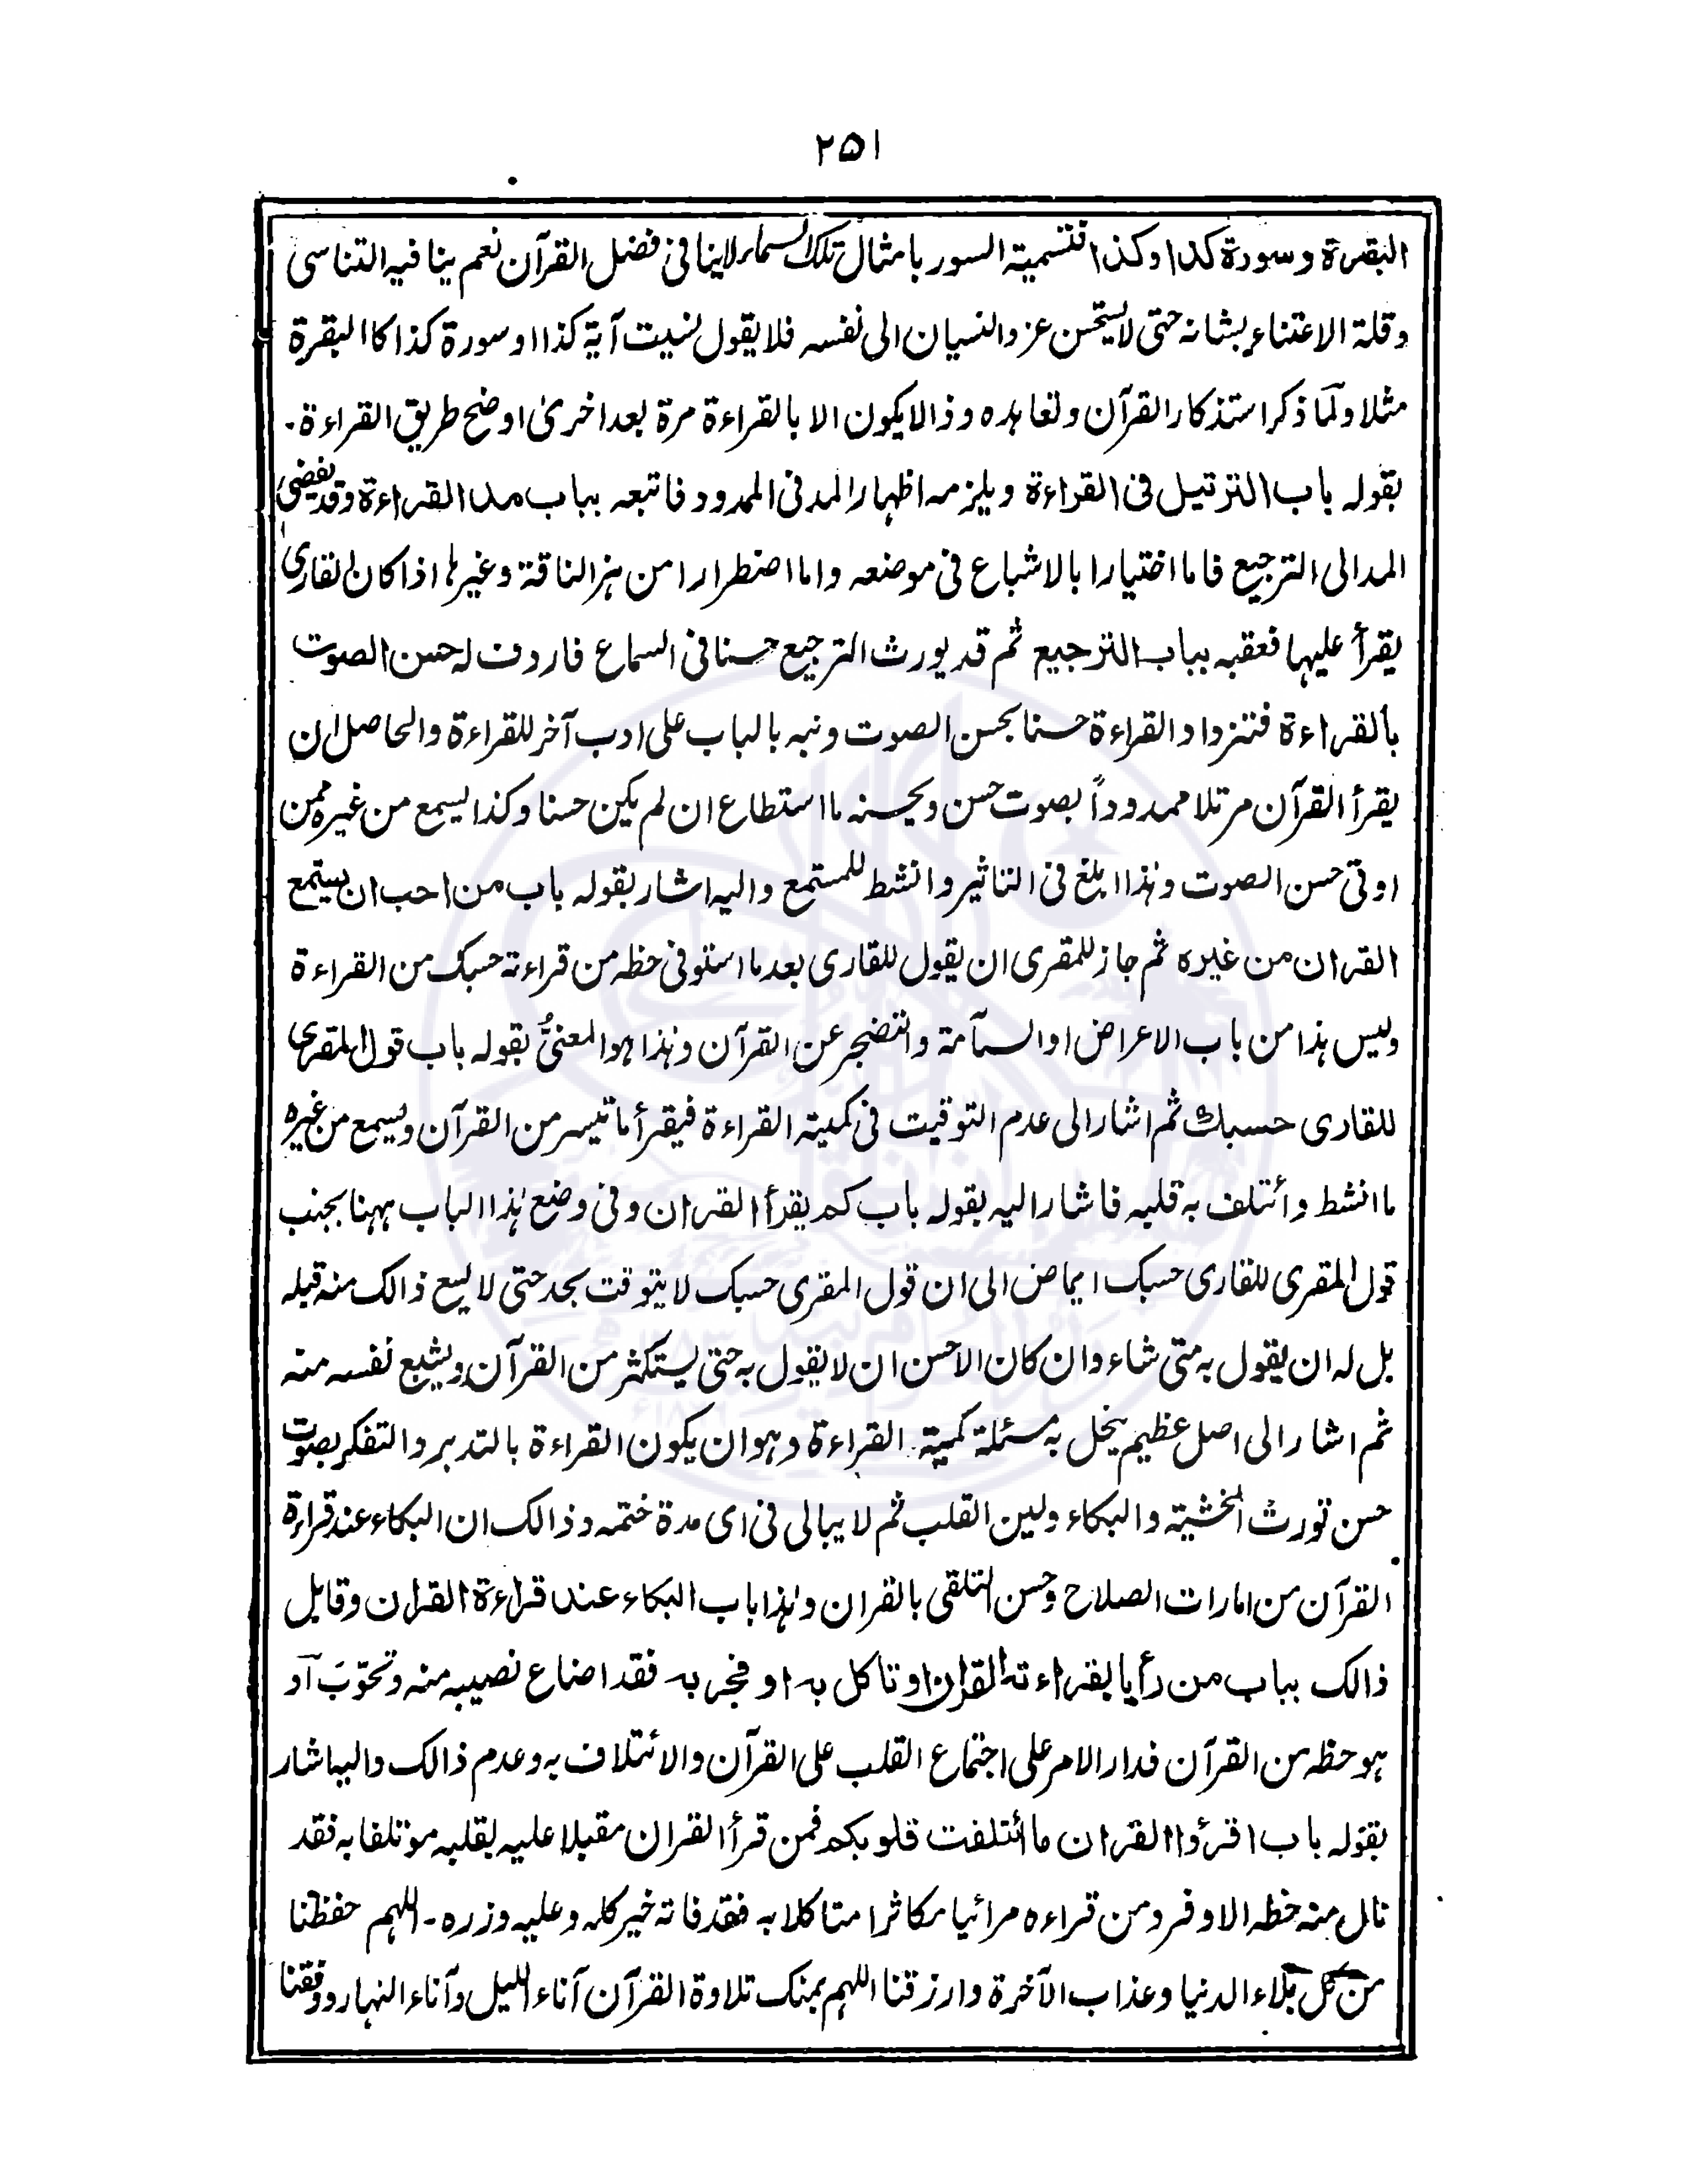 ۲۵۱
البقرة وسورة كذا وكذا فتسمية السور بامثال تلك السماء لاينافى فضل القرآن نعم ينافيه التناسى
وقلة الاعتناء بشانه حتى لايستحسن عزو النسيان الى نفسه فلا يقول نسيت آية كذا او سورة كذا كا البقرة
مثلا ولمّا ذكر استذكار القرآن وتعاهده وذا لايكون الا بالقراءة مرة بعد اخرىٰ اوضح طريق القراءة۔
بقوله باب الترتيل فى القراءة ويلزمه اظهار المد فى الممدود فاتبعه بباب مد القراءة وقد يفضى
المد الى الترجيع فاما اختيارا بالاشباع فى موضعه واما اضطرارا من هز الناقة وغيرها اذا كان القارى
يقرأ عليها فعقبه بباب الترجيع ثم قد يورث الترجيع حسنا فى السماع فاردف له حسن الصوت
بالقراءة فتزداد القراءة حسنا بحسن الصوت ونبه بالباب على ادب آخر للقراءة والحاصل ان
يقرأ القرآن مرتلا ممدوداً بصوت حسن ويحسنه ما استطاع ان لم يكن حسنا وكذا ليسمع من غيره ممن
اوتى حسن الصوت وهٰذا ابلغ فى التاثير وانشط للمستمع واليه اشار بقوله باب من احب ان يستمع
القران من غيره ثم جاز للمقرى ان يقول للقارى بعد ما استوفى حظه من قراءته حسبك من القراءة
وليس هذا من باب الاعراض او السآمة والتضجر عن القرآن وهٰذا هو المعنىُّ بقوله باب قول المقرى
للقارى حسبك ثم اشار الى عدم التوقيت فى كمية القراءة فيقرأ ما تيسر من القرآن ويسمع من غيره
ما انشط وأتلف به قلبه فاشار اليه بقوله باب كم يقرأ القران وفى وضع هٰذا الباب ههنا بجنب
قول المقرى للقارى حسبك ايماض الى ان قول المقرى حسبك لا يتوقت بحد حتى لا يسع ذالك منه قبله
بل له ان يقول به متى شاء وان كان الاحسن ان لا يقول به حتى يستكثر من القرآن ويشبع نفسه منه
ثم اشار الى اصل عظيم يخل به مسئلة كمية القراءة وهو ان يكون القراءة بالتدبر والتفكر بصوت
حسن تورث الخشية والبكاء ولين القلب ثم لا يبالى فى اى مدة ختمه وذالك ان البكاء عند قراءة
القرآن من امارات الصلاح وحسن التلقى بالقران وهٰذا باب البكاء عند قراءة القران وقابل
ذالك بباب من رأيا بقراءته القران او تاكل به او فجر به فقد اضاع نصيبه منه وتحوّب
هو حظه من القرآن فدار الامر على اجتماع القلب على القرآن والائتلاف به وعدم ذالك واليه اشار
بقوله باب اقرؤا القران ما ائتلفت قلوبكم فمن قرأ القران مقبلا عليه بقلبه مؤتلفا به فقد
نال منه حظه الاوفر ومن قراءه مرائيا مكاثرا متاكلا به فقد فاته خير كله وعليه وزره۔ اللهم حفظنا
من كل بلاء الدنيا وعذاب الآخرة وارزقنا اللهم بمنك تلاوة القرآن آناء الليل وآناء النهار ووفقنا